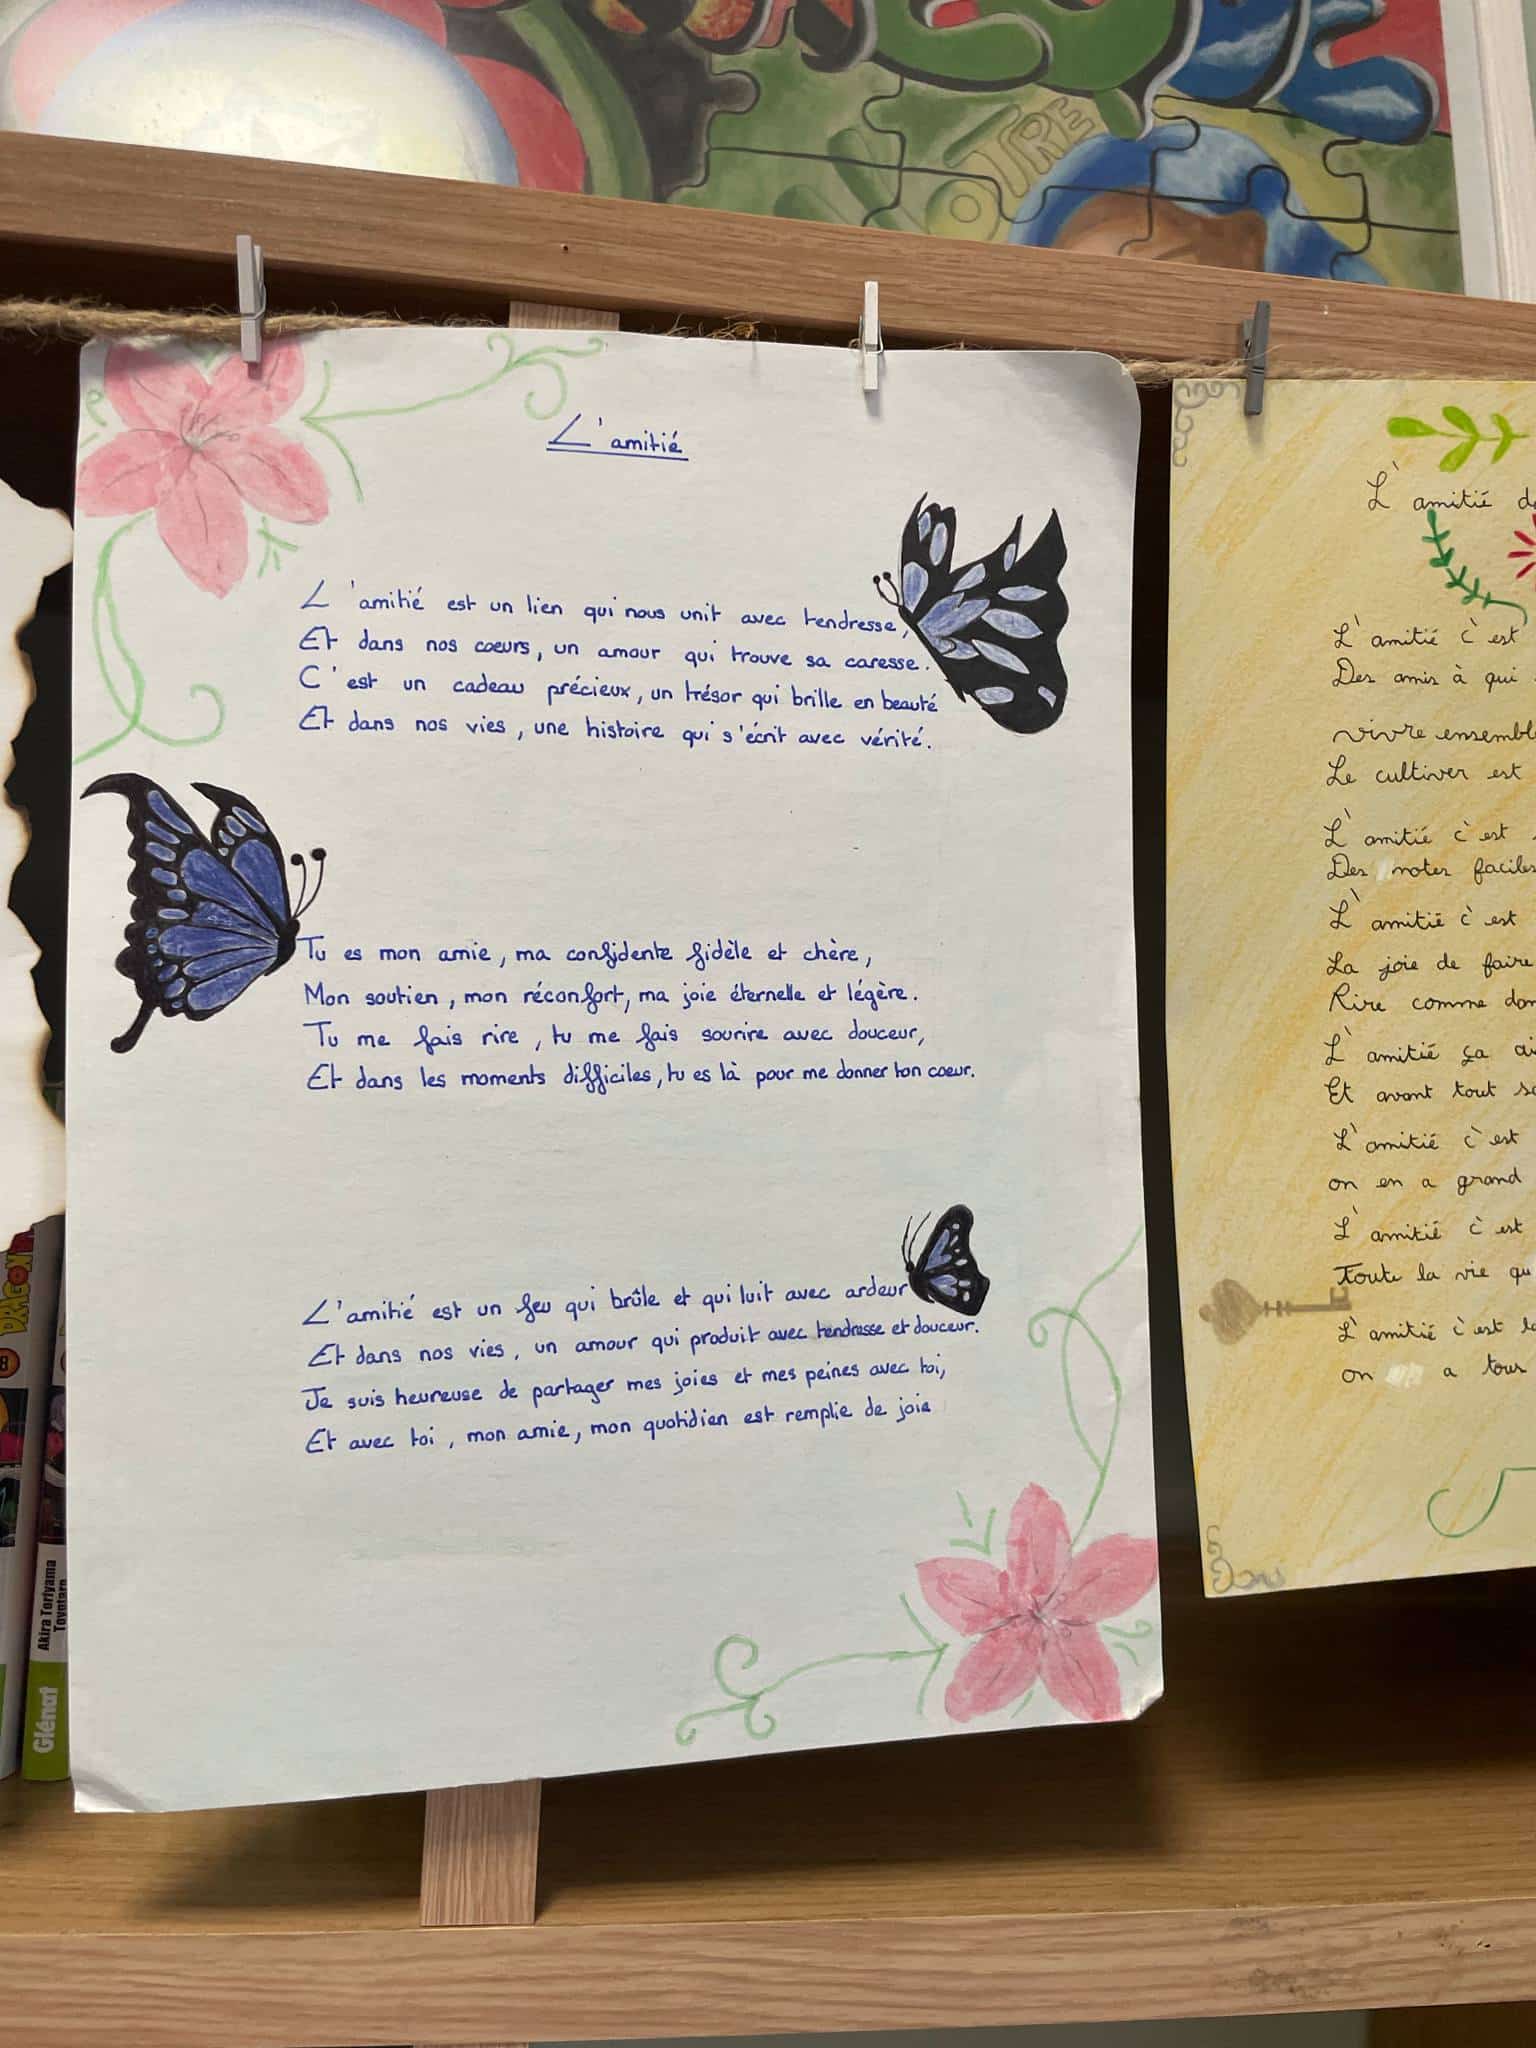 NOTRE
L'amitié
L'amitié est un lien qui nous unit avec tendresse,
Et dans nos coeurs, un amour qui trouve sa caresse.
C'est un cadeau précieux, un trésor qui brille en beauté
Et dans nos vies, une histoire qui s'écrit avec vérité.
Tu es mon amie, ma confidente fidèle et chère,
Mon soutien, mon réconfort, ma joie éternelle et légère.
Tu me fais rire, tu me fais sourire avec douceur,
Et dans les moments difficiles, tu es là pour me donner ton coeur.
L'amitié est un feu qui brûle et qui luit avec ardeur
Et dans nos vies, un amour qui produit avec tendresse et douceur.
Je suis heureuse de partager mes joies et mes peines avec toi,
Et avec toi, mon amie, mon quotidien est remplie de joie
L'amitié
L'amitié c'est
Des amis à qui
vivre ensemble
Le cultiver est
L'amitié c'est
Des notes faciles
L'amitié c'est
La joie de faire
Rire comme
L'amitié ça
Et avant tout
L'amitié c'est
on en a grand
L'amitié c'est
Toute la vie
L'amitié c'est
on a tous
DRAGON
8
Akira Toriyama
Toyotaro
Glénat